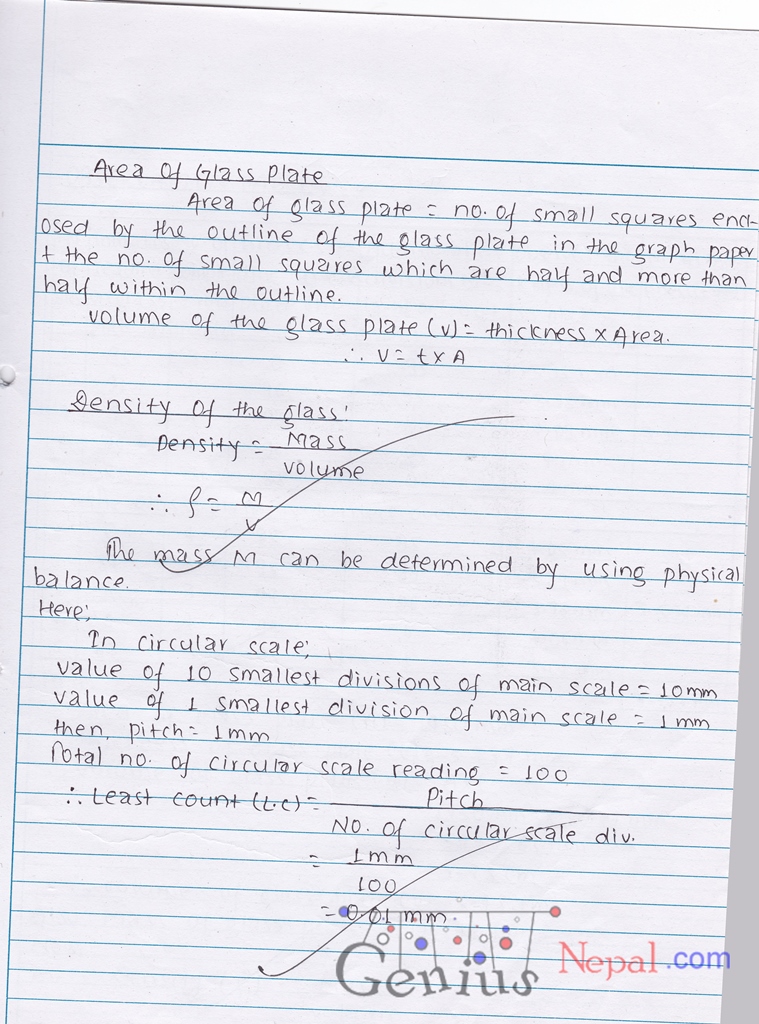 Area Of Glass Plate
Area of glass plate = no. of small squares encl-
osed by the outline of the glass plate in the graph paper
+ the no. of small squares which are half and more than
half within the outline.
volume of the glass plate (v) = thickness x Area.
∴ v = t x A
Density of the glass:
Density = Mass
volume
∴ ρ = M
v
The mass M can be determined by using physical
balance.
Here;
In circular scale;
value of 10 smallest divisions of main scale = 10mm
value of 1 smallest division of main scale = 1mm
then, pitch = 1mm
Total no. of circular scale reading = 100
∴ Least count (L.C) = Pitch
No. of circular scale div.
= 1mm
100
= 0.01 mm.
Genius Nepal.com